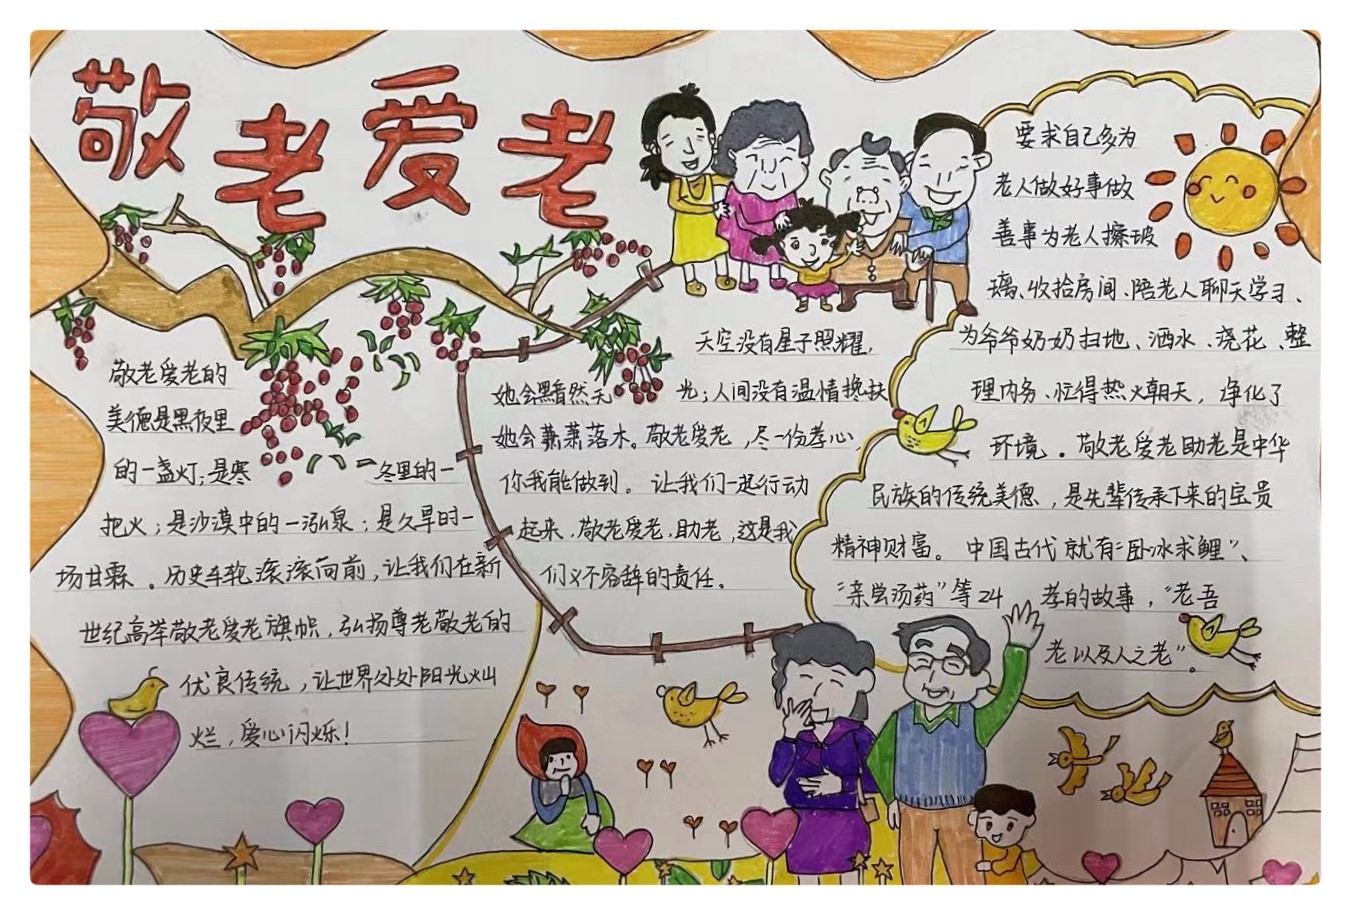 敬老爱老
敬老爱老的
美德是黑夜里
的一盏灯；是寒冬里的一
把火；是沙漠中的一泓泉；是久旱时一
场甘霖。历史车轮滚滚向前，让我们在新
世纪高举敬老爱老旗帜，弘扬尊老敬老的
优良传统，让世界处处阳光灿
烂，爱心闪烁！
天空没有星子照耀，
她会黯然无光；人间没有温情搀扶
她会萧萧落木。敬老爱老，尽一份孝心，
你我能做到。让我们一起行动
起来，敬老爱老，助老，这是我
们义不容辞的责任。
要求自己多为
老人做好事做
善事为老人擦玻
璃、收拾房间、陪老人聊天学习、
为爷爷奶奶扫地、洒水、浇花、整
理内务、忙得热火朝天，净化了
环境。敬老爱老助老是中华
民族的传统美德，是先辈传承下来的宝贵
精神财富。中国古代就有“卧冰求鲤”、
“亲尝汤药”等24孝的故事，“老吾
老以及人之老”。